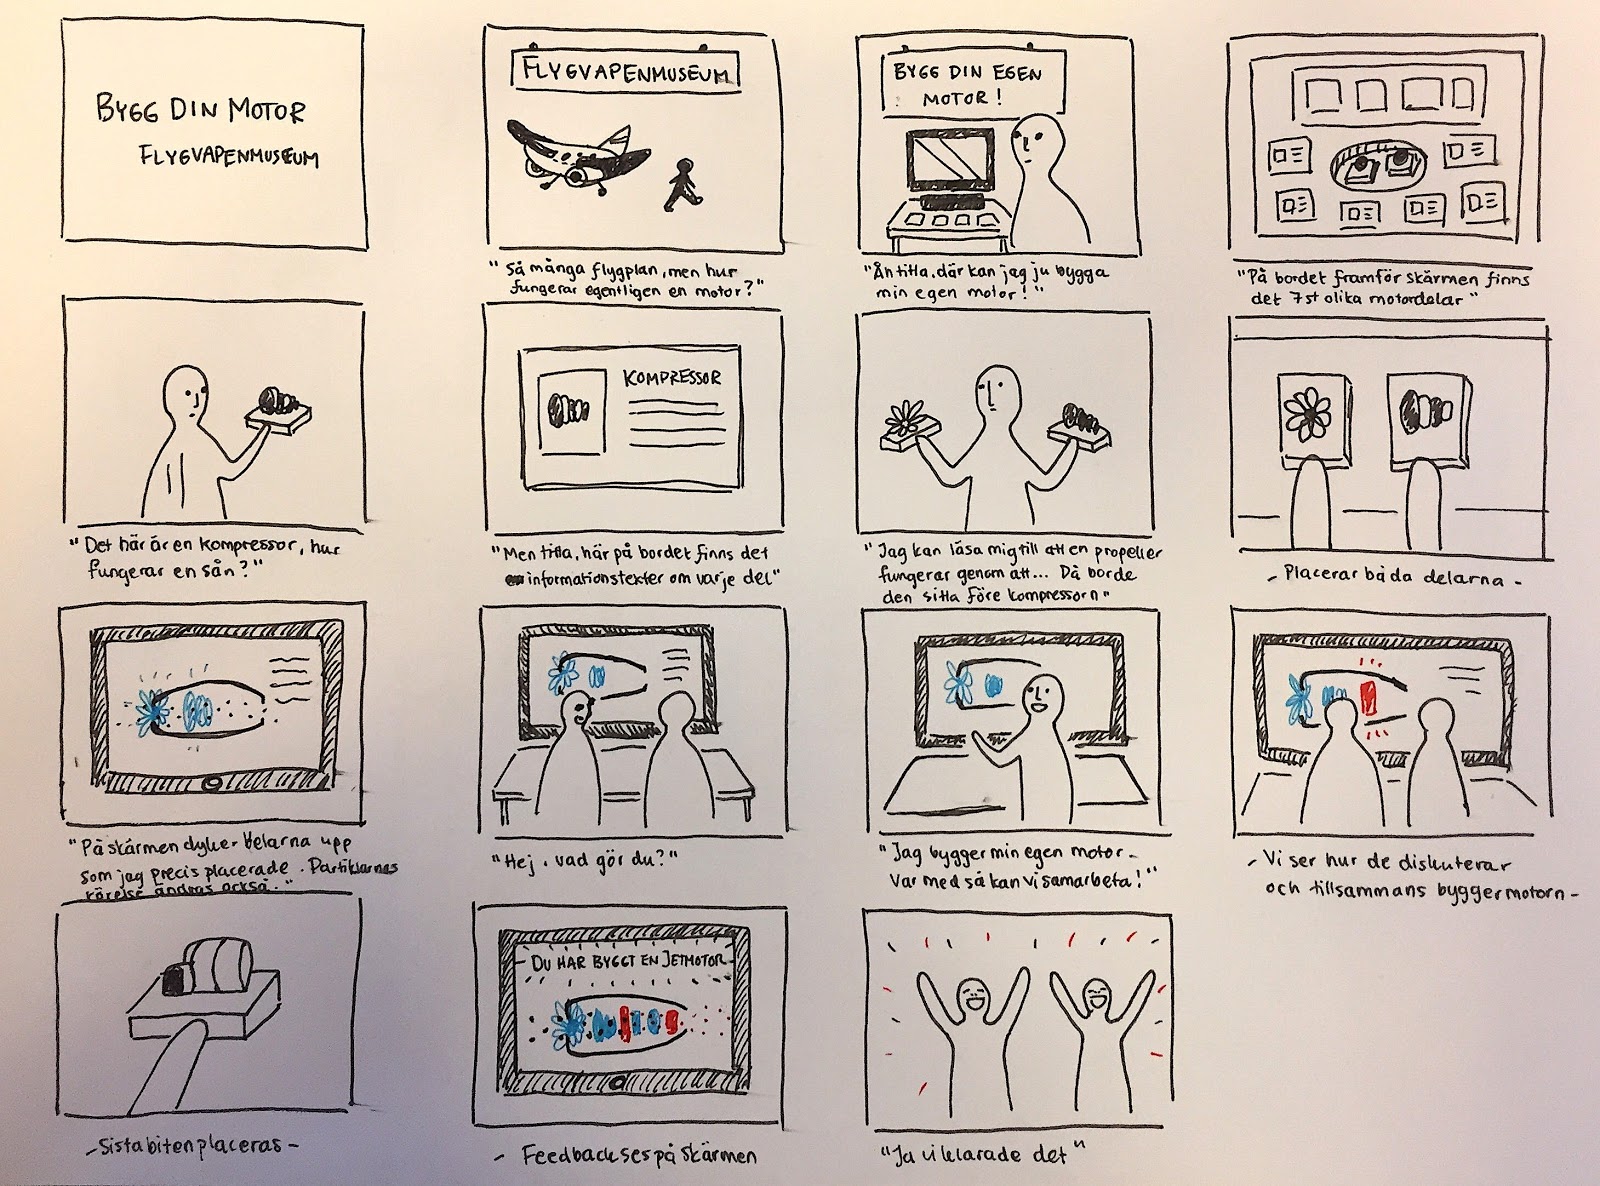 BYGG DIN MOTOR
FLYGVAPENMUSEUM
FLYGVAPENMUSEUM
"Så många flygplan, men hur
fungerar egentligen en motor?"
BYGG DIN EGEN
MOTOR!
"Åh titta, där kan jag ju bygga
min egen motor!"
"På bordet framför skärmen finns
det 7st olika motordelar"
"Det här är en kompressor, hur
fungerar en sån?"
KOMPRESSOR
"Men titta, här på bordet finns det
informationstexter om varje del"
"Jag kan läsa mig till att en propeller
fungerar genom att... Då borde
den sitta före kompressorn"
- Placerar båda delarna -
"På skärmen dyker delarna upp
som jag precis placerade. Partiklarnas
rörelse ändras också."
"Hej, vad gör du?"
"Jag bygger min egen motor -
Var med så kan vi samarbeta!"
- Vi ser hur de diskuterar
och tillsammans bygger motorn -
- Sista biten placeras -
DU HAR BYGGT EN JETMOTOR
- Feedback ses på skärmen
"Ja vi klarade det"